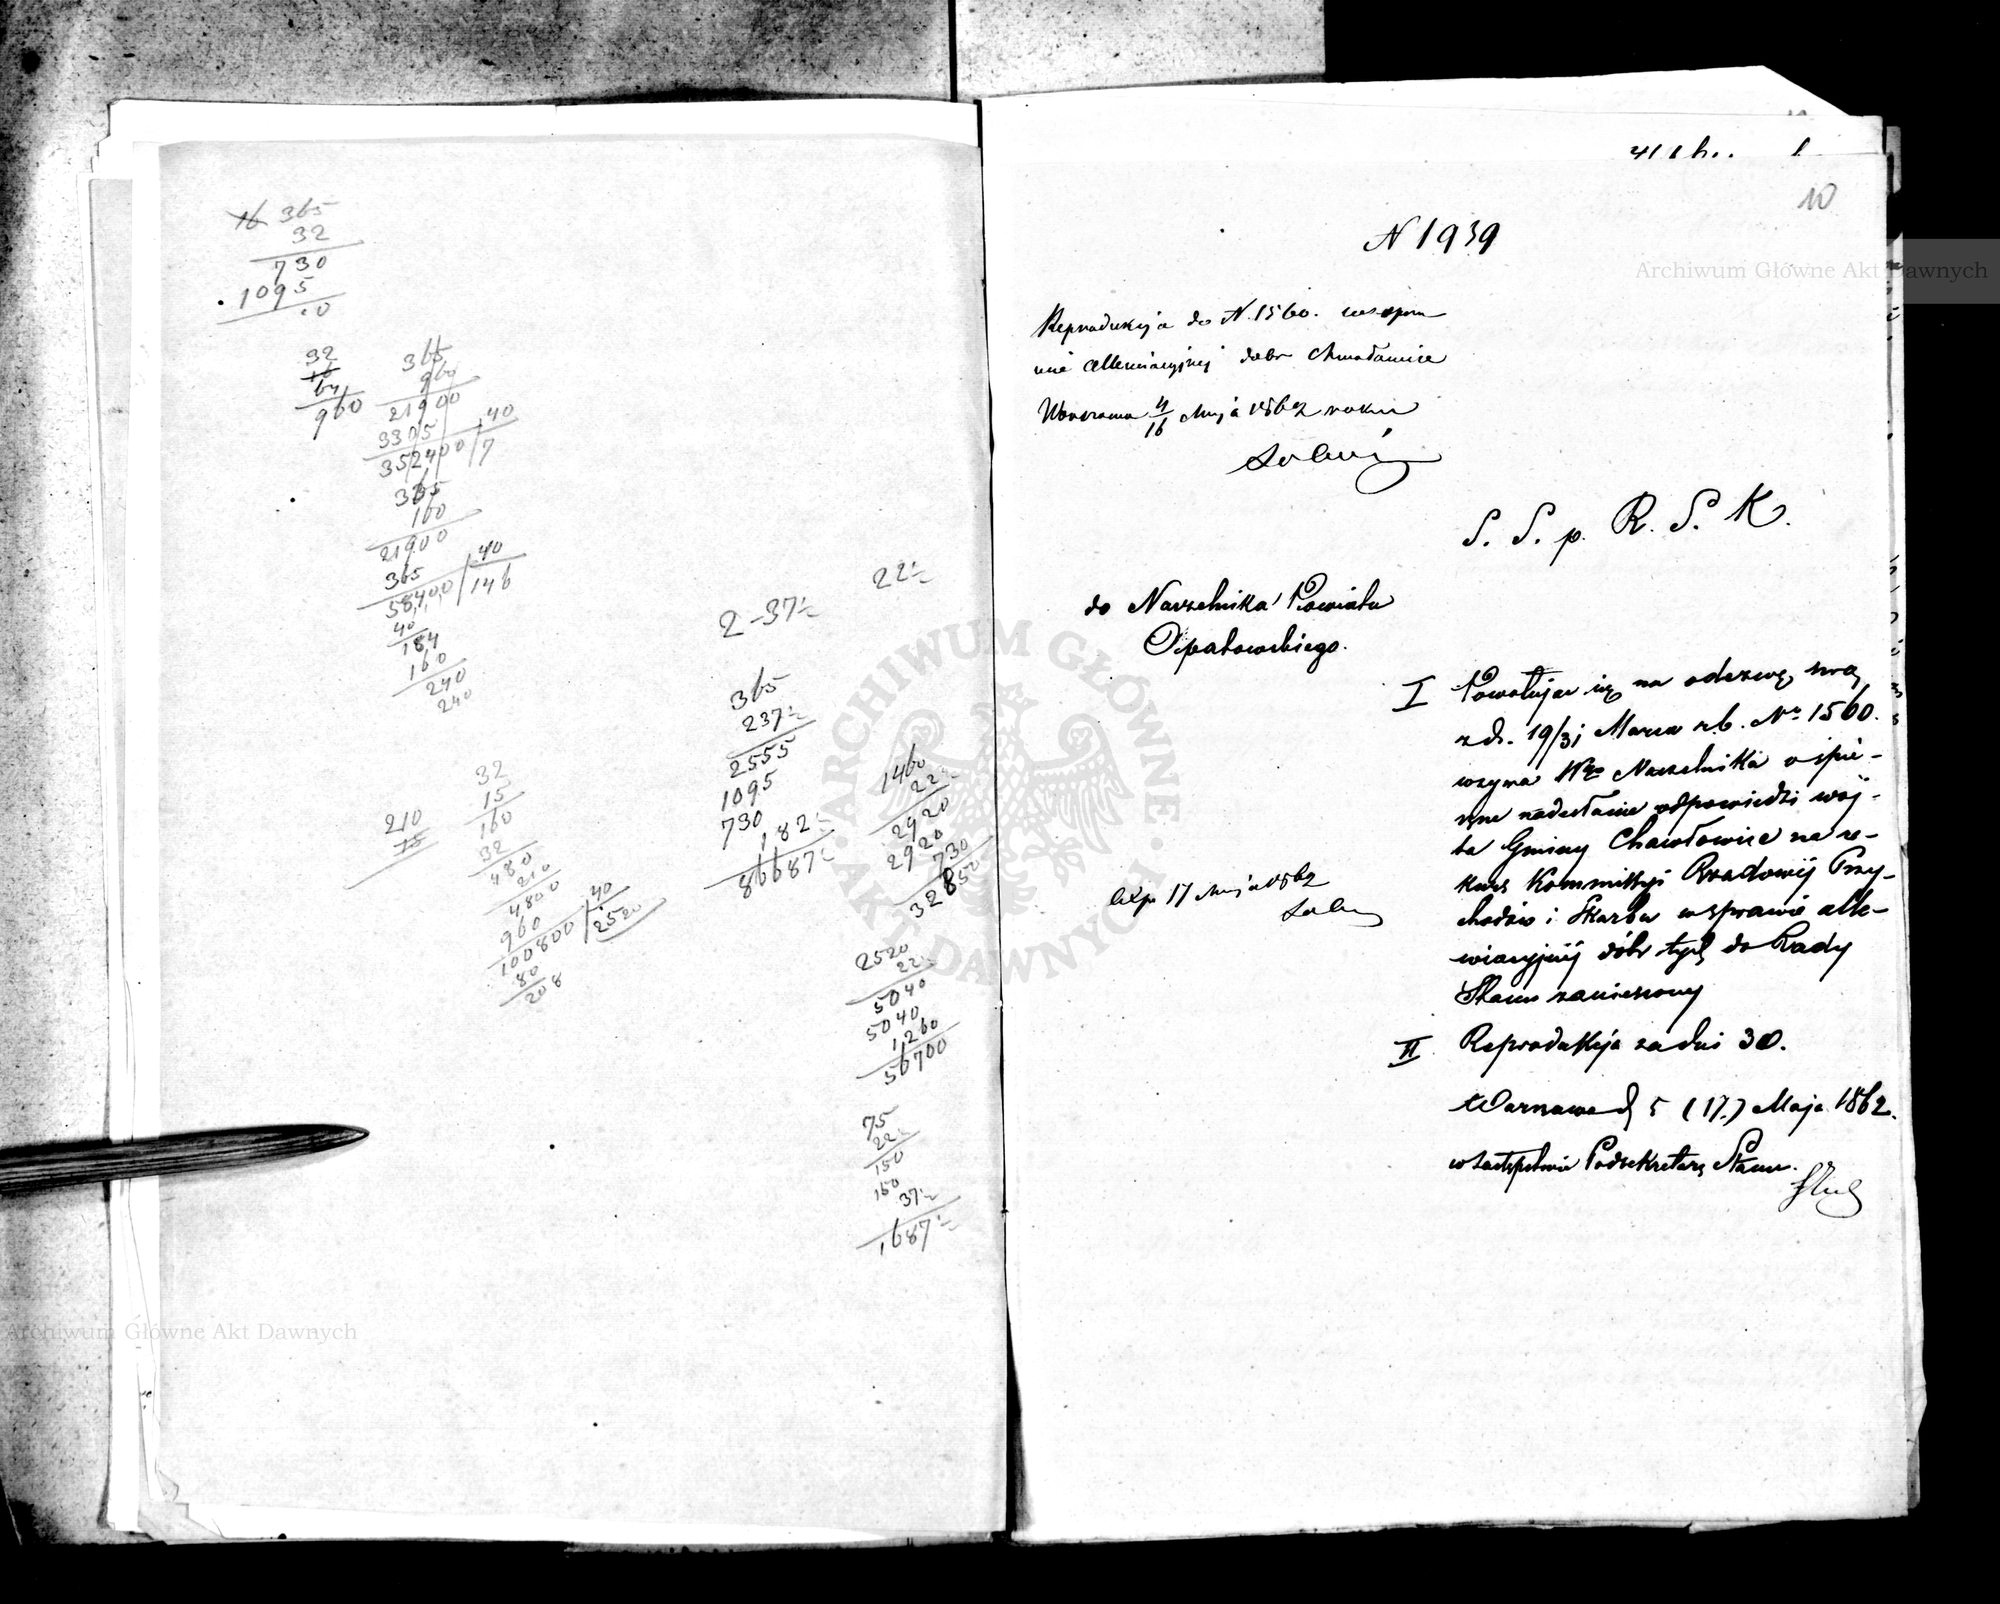 16 365
32
730
1095
.0
32
16
64
960
365
960
21900
3305
352400 / 40
7
365
160
21900
365
58400 / 40
146
40
184
160
240
240
210
15
32
15
160
32
480
210
4800
960
100800 / 40
2520
80
208
2-37½
22½
365
237½
2555
1095
730
182½
86687½
1460
22½
2920
2920
730
32850
2520
22½
5040
5040
1260
56700
75
22½
150
150
37½
1687½
10
N 1939
Reprodukcja do N. 1560. w
allewiacyjnej dobr
Warszawa 4/16 Maja 1862 roku
S. S. p. R. S. K.
do Naczelnika Powiatu
Opatowskiego.
I Powołując się na odezwę swą
z d. 19/31 Marca r.b. Nr 1560.
wzywa Wgo Naczelnika o śpie-
szne nadesłanie odpowiedzi wój-
ta Gminy Chwałowice na re-
kurs Kommissyi Rządowéj Przy-
chodów i Skarbu w sprawie alle-
wiacyjnéj dóbr tych do Rady
Stanu zaniesiony
Exp. 17 Maja 1862
II Reprodukcja za dni 30.
Warszawa d. 5 (17.) Maja 1862.
w zastępstwie Podsekretarz Stanu.
Archiwum Główne Akt Dawnych
Archiwum Główne Akt Dawnych
ARCHIWUM GŁÓWNE · AKT DAWNYCH ·